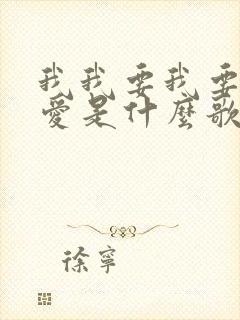 我我要我要
愛是什麼歌
徐寧